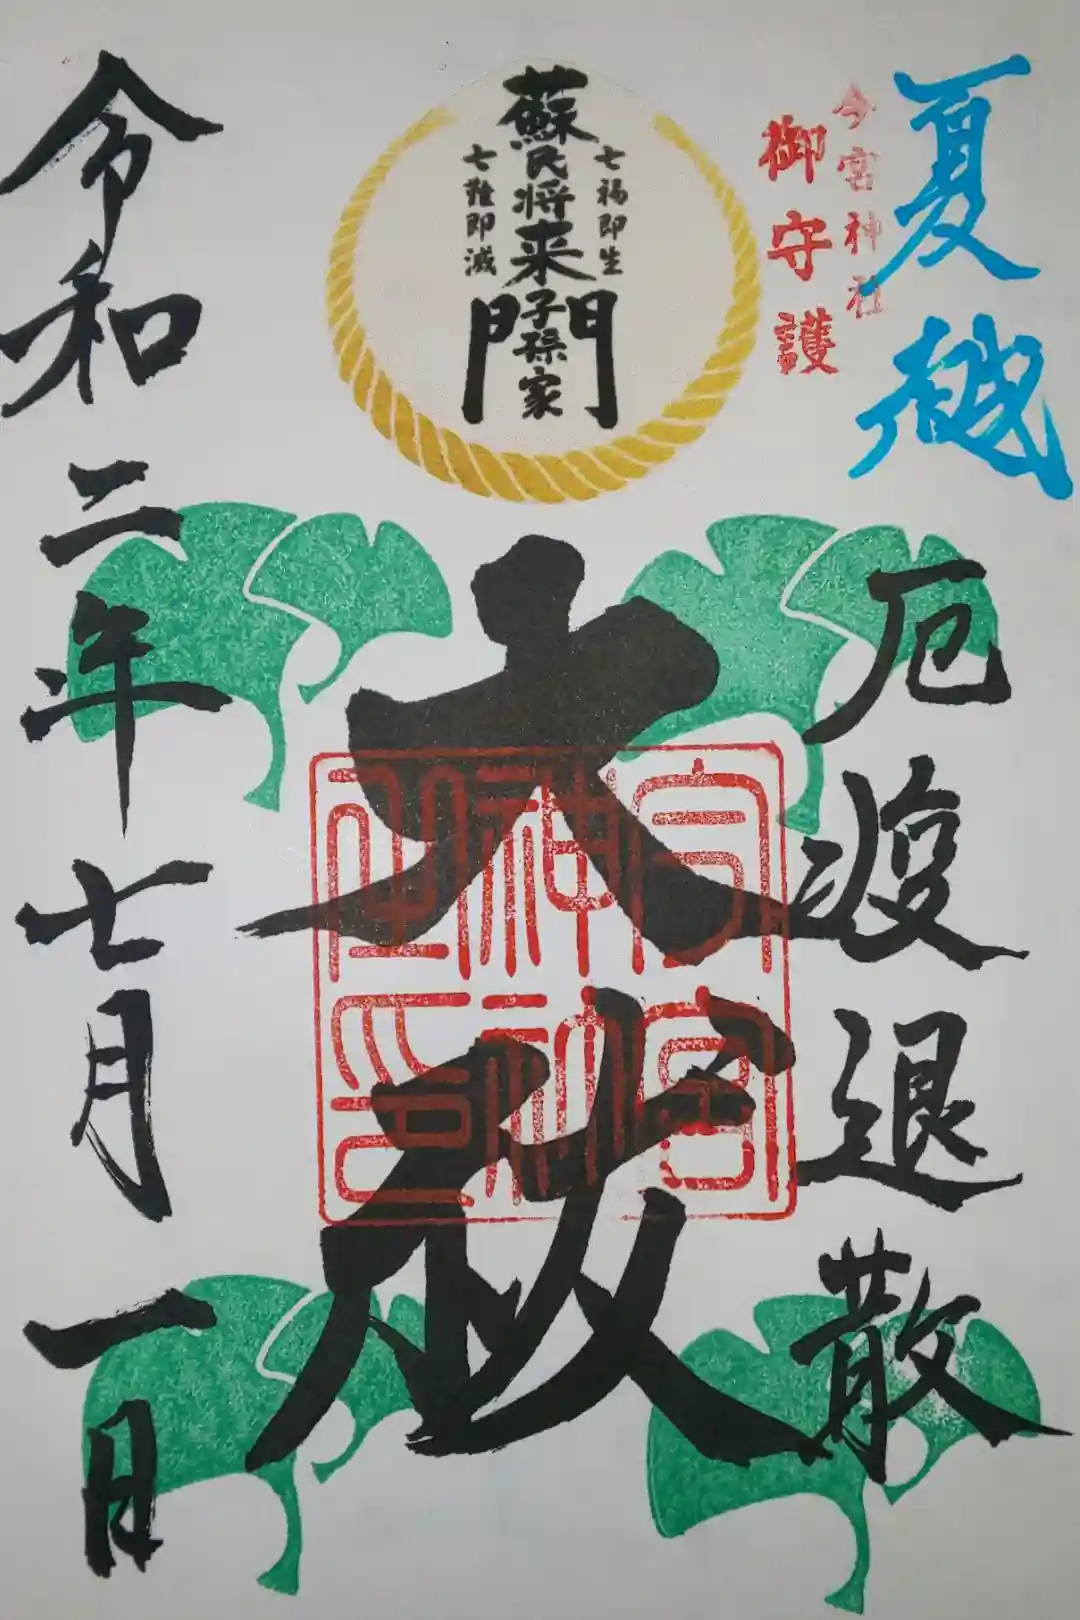 夏越
厄疫退散
今宮神社
御守護
七福即生
蘇民将来子孫家門
七難即滅
大祓
令和二年七月一日